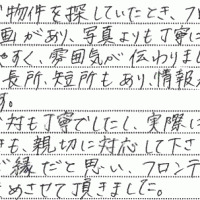 物件を探していたとき、フロ
画があり、写真よりも丁寧に
やすく、雰囲気が伝わりまし
長所、短所もあり、情報
す。
対も丁寧でしたし、実際に
も、親切に対応して下さ
ご縁だと思い、フロンテ
めさせて頂きました。